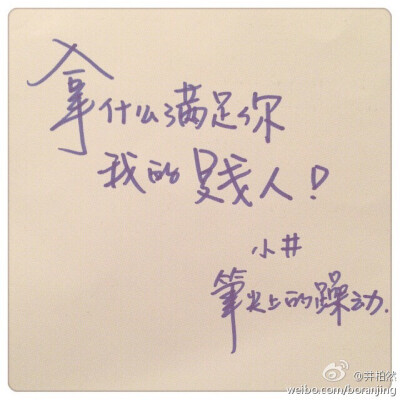 拿什么满足你
我的贱人!
小井
笔尖上的躁动.
@井柏然
weibo.com/boranjing